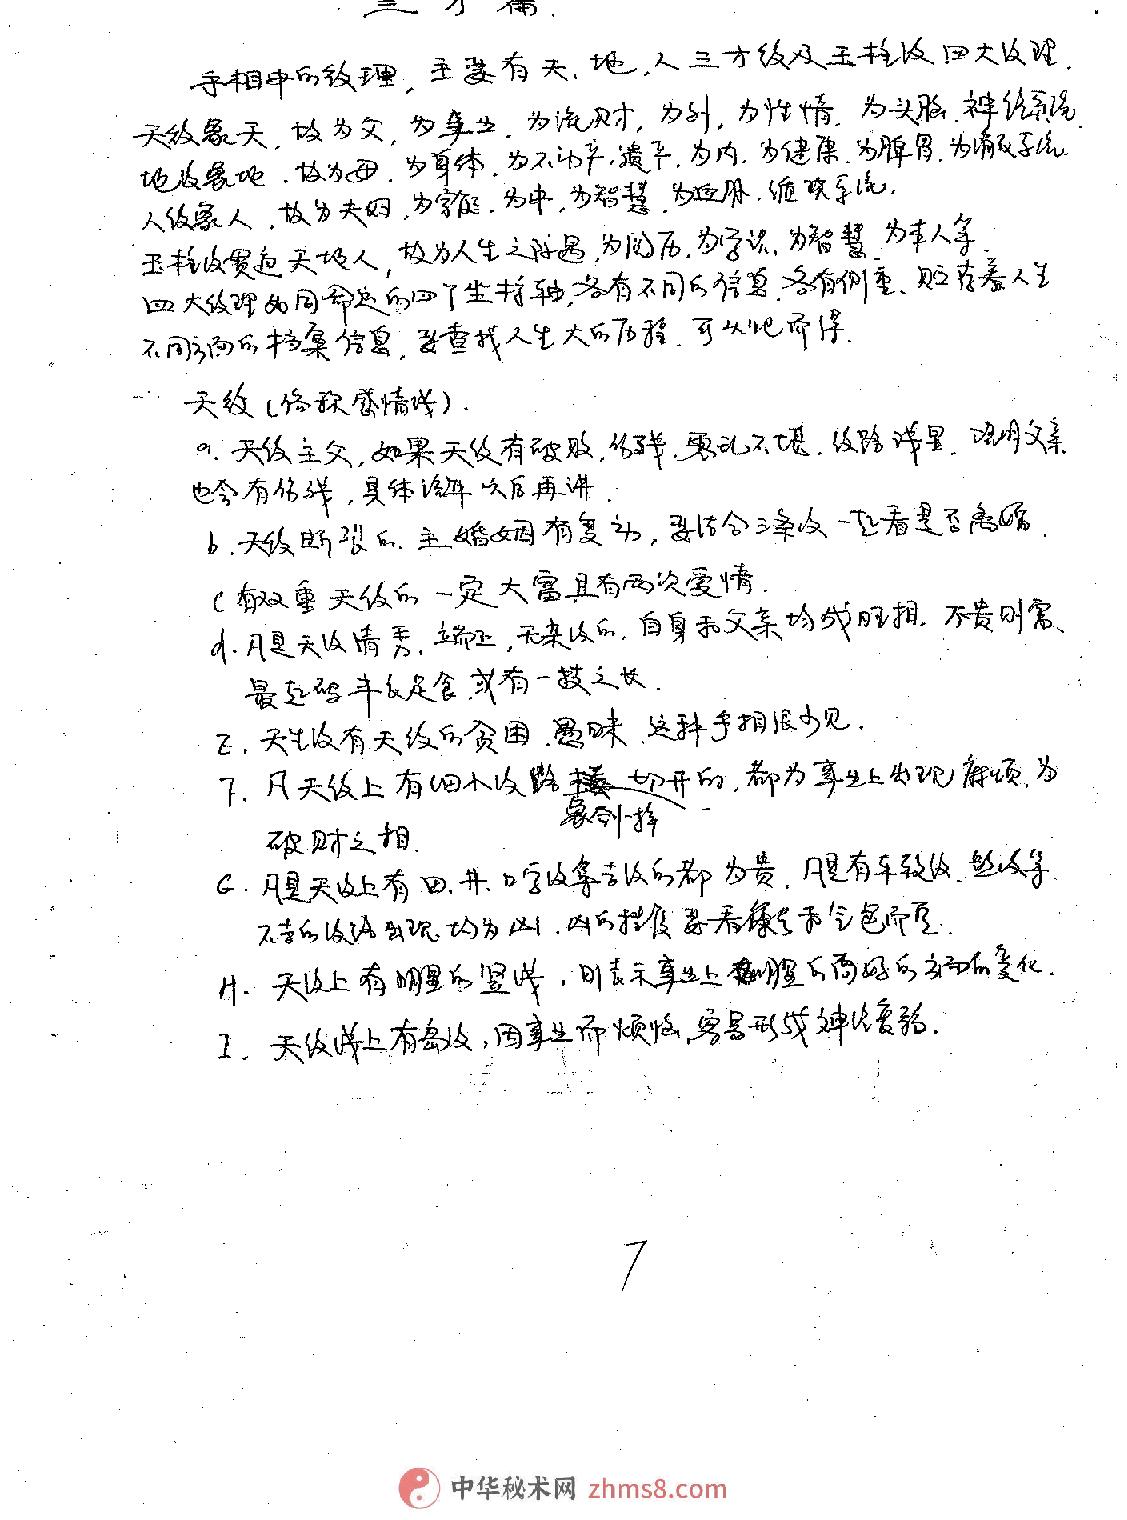 三才篇.
手相中的纹理, 主要有天.地.人三才纹及玉柱纹四大纹理.
天纹象天, 故为父, 为事业, 为流财, 为外, 为性情. 为头脑.神经系统.
地纹象地. 故为母. 为身体. 为不动产.遗产. 为内. 为健康. 为脾胃. 为消化系统
人纹象人, 故为夫妇, 为家庭. 为中, 为智慧. 为血脉. 循环系统.
玉柱纹贯通天地人, 故为人生之际遇, 为阅历. 为学识. 为智慧. 为本人等.
四大纹理如同命运的四个坐标轴, 各有不同的信息. 各有侧重. 贮存着人生
不同方面的档案信息, 要查找人生大的历程. 可从此而得.
天纹(俗称感情线).
a. 天纹主父, 如果天纹有破败, 伤残. 零乱不堪. 纹路浅显. 说明父亲
也会有伤残, 具体详解以后再讲.
b. 天纹断裂的. 主婚姻有变动, 要结合三条纹一起看是否离婚.
C 有双重天纹的一定大富且有两次爱情.
d. 凡是天纹清秀. 端正, 无杂纹的. 自身和父亲均成旺相. 不贵则富、
最起码丰衣足食. 或有一技之长.
E. 天生没有天纹的贫困. 愚昧. 这种手相很少见.
F. 凡天纹上有细小纹路 切开的, 都为事业上出现麻烦, 为
象剑一样
破财之相.
G. 凡是天纹上有田.井.口字纹等吉纹的都为贵. 凡是有 纹. 纹等
不吉的纹路出现均为凶. 凶的程度要看 和气色而定.
H. 天纹上有明显的竖线, 则表示事业上有明显的 好的方面的变化.
I. 天纹线上有岛纹, 因事业而烦恼, 容易形成神经衰弱.
7
中华秘术网 zhms8.com